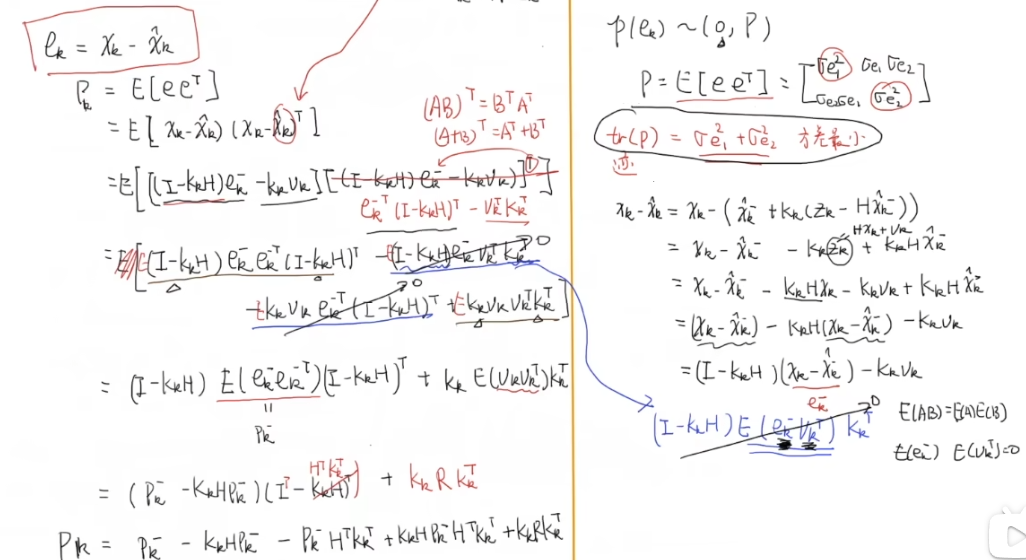 e_k = x_k - x̂_k
P_k = E[ee^T]
= E[ x_k - x̂_k) (x_k - x̂_k)^T ]
(AB)^T = B^T A^T
(A+B)^T = A^T + B^T
= E[ [(I-K_kH)e_k^- - K_kv_k] [(I-K_kH)e_k^- - K_kv_k)]^T ]
e_k^-T (I-K_kH)^T - v_k^T K_k^T
= E[ E(I-K_kH) e_k^- e_k^-T (I-K_kH)^T - E(I-K_kH)e_k^- v_k^T K_k^T → 0
- E K_k v_k e_k^-T (I-K_kH)^T → 0 + E K_k v_k v_k^T K_k^T ]
= (I-K_kH) E(e_k^- e_k^-T)(I-K_kH)^T + K_k E(v_k v_k^T)K_k^T
P_k^-
= (P_k^- - K_kHP_k^-)(I^T - K_kH)^T) + K_k R K_k^T
H^T K_k^T
P_k = P_k^- - K_kHP_k^- - P_k^- H^T K_k^T + K_kHP_k^- H^T K_k^T + K_kRK_k^T
p(e_k) ~ (0, P)
P = E[ee^T] = [σe₁² σe₁σe₂
σe₂σe₁ σe₂²]
tr(P) = σe₁² + σe₂² 方差最小
迹
x_k - x̂_k = x_k - (x̂_k^- + K_k(z_k - Hx̂_k^-))
Hx_k + v_k
= x_k - x̂_k^- - K_kz_k + K_kHx̂_k^-
= x_k - x̂_k^- - K_kHx_k - K_kv_k + K_kHx̂_k^-
= (x_k - x̂_k^-) - K_kH(x_k - x̂_k^-) - K_kv_k
= (I-K_kH)(x_k - x̂_k^-) - K_kv_k
e_k^-
(I-K_kH)E(e_k^- v_k^T) K_k^T → 0
E(AB)=E(A)E(B)
E(e_k^-) E(v_k^T)=0